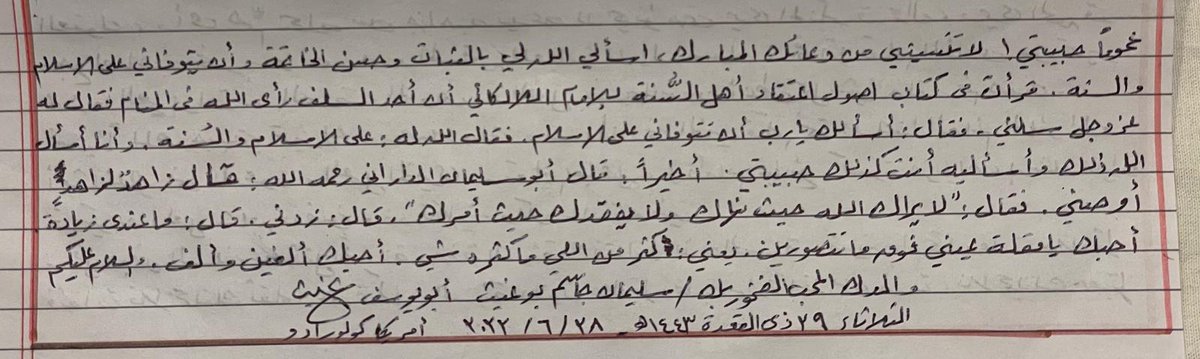 عموماً حبيبتي! لا تنسيني من دعائك المبارك، اسألي الله لي بالثبات وحسن الخاتمة وأن يتوفاني على الاسلام
والسنة. قرأت في كتاب اصول اعتقاد أهل السُّنة للإمام اللالكائي أن أحد السلف رأى الله في المنام فقال له
عز وجل سلني. فقال: أسألك يا رب أن تتوفاني على الاسلام. فقال الله له: على الاسلام والسُنة. وأنا أسأل
الله ذلك وأسأليه أنت كذلك حبيبتي. أخيراً، قال أبو سليمان الداراني رحمه الله: قال زاهدٌ لزاهدٍ
أوصني. فقال: "لا يراك الله حيث نهاك ولا يفقدك حيث أمرك". قال: زدني. قال: ما عندي زيادة
أحبك يا مقلة عيني فوق ما تتصورين. يعني: كثر من اللي ماكثره شي. أحبك ألفين وألف. والسلام عليكم
والدك المحب الفخور بك/ سليمان جاسم بوغيث أبو يوسف
الثلاثاء ٢٩ ذي القعدة ١٤٤٣هـ ٢٠٢٢/٦/٢٨ أمريكا كولورادو